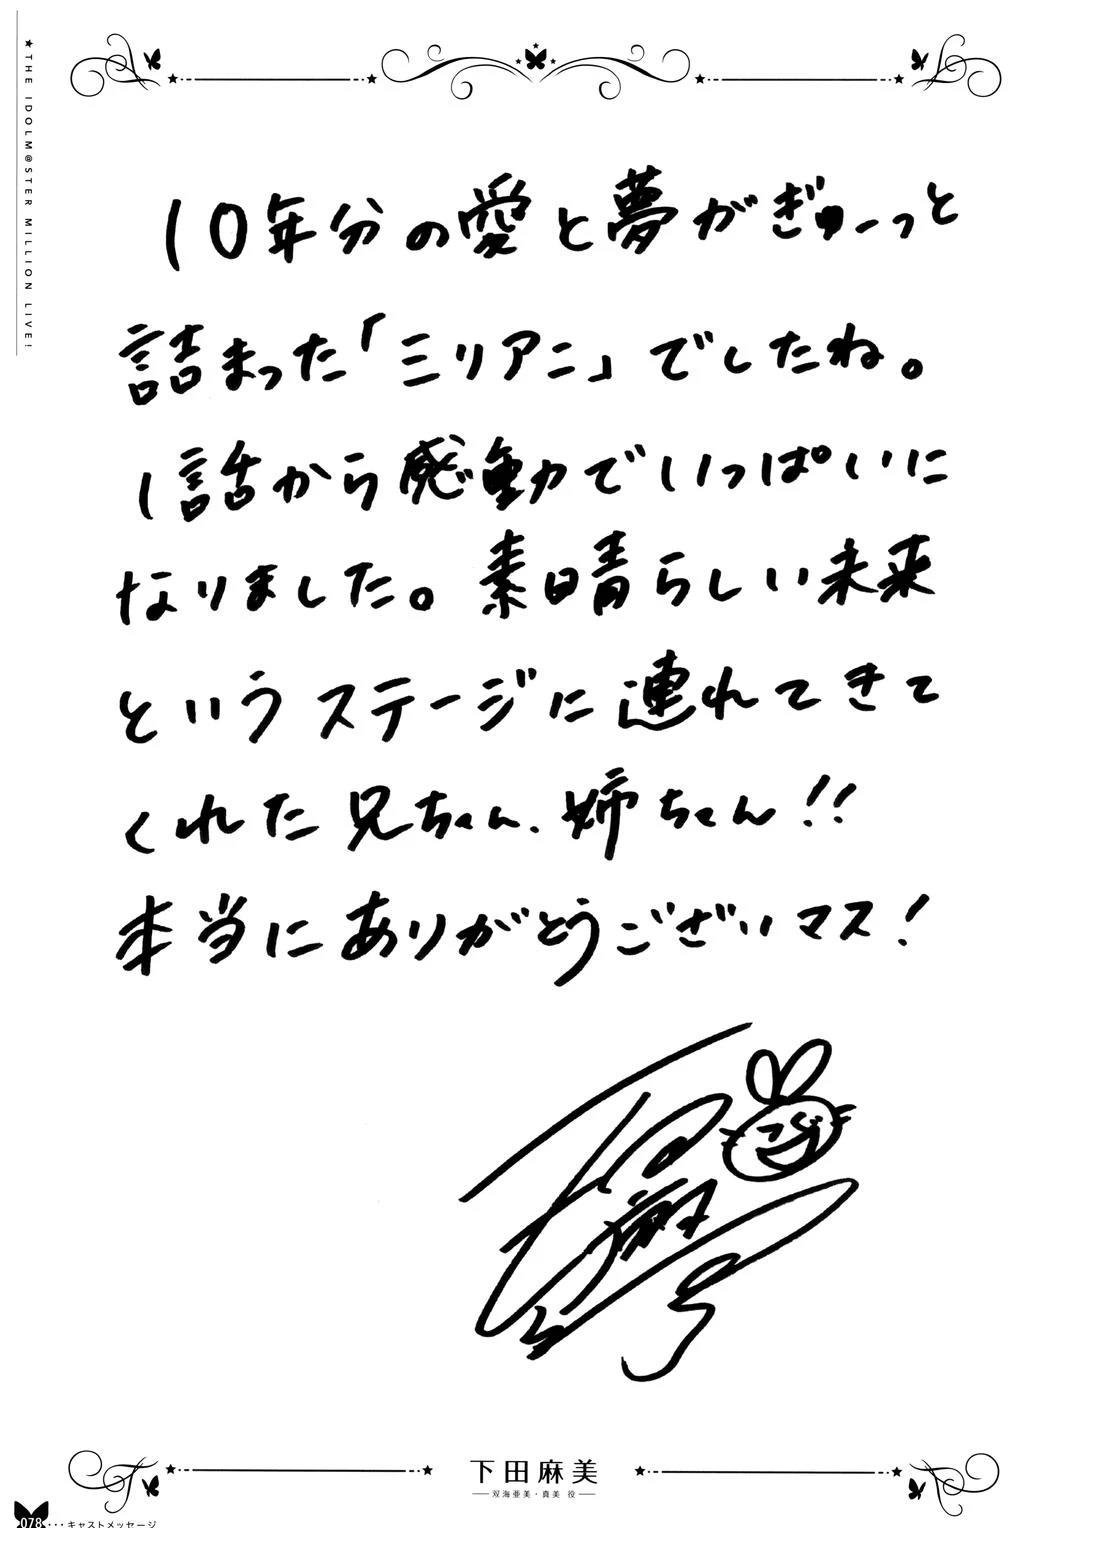 ★THE IDOLM@STER MILLION LIVE!
10年分の愛と夢がぎゅーっと
詰まった「ミリアニ」でしたね。
1話から感動でいっぱいに
なりました。素晴らしい未来
というステージに連れてきて
くれた兄ちゃん、姉ちゃん!!
本当にありがとうございマス!
下田麻美
双海亜美・真美 役
078・・・キャストメッセージ